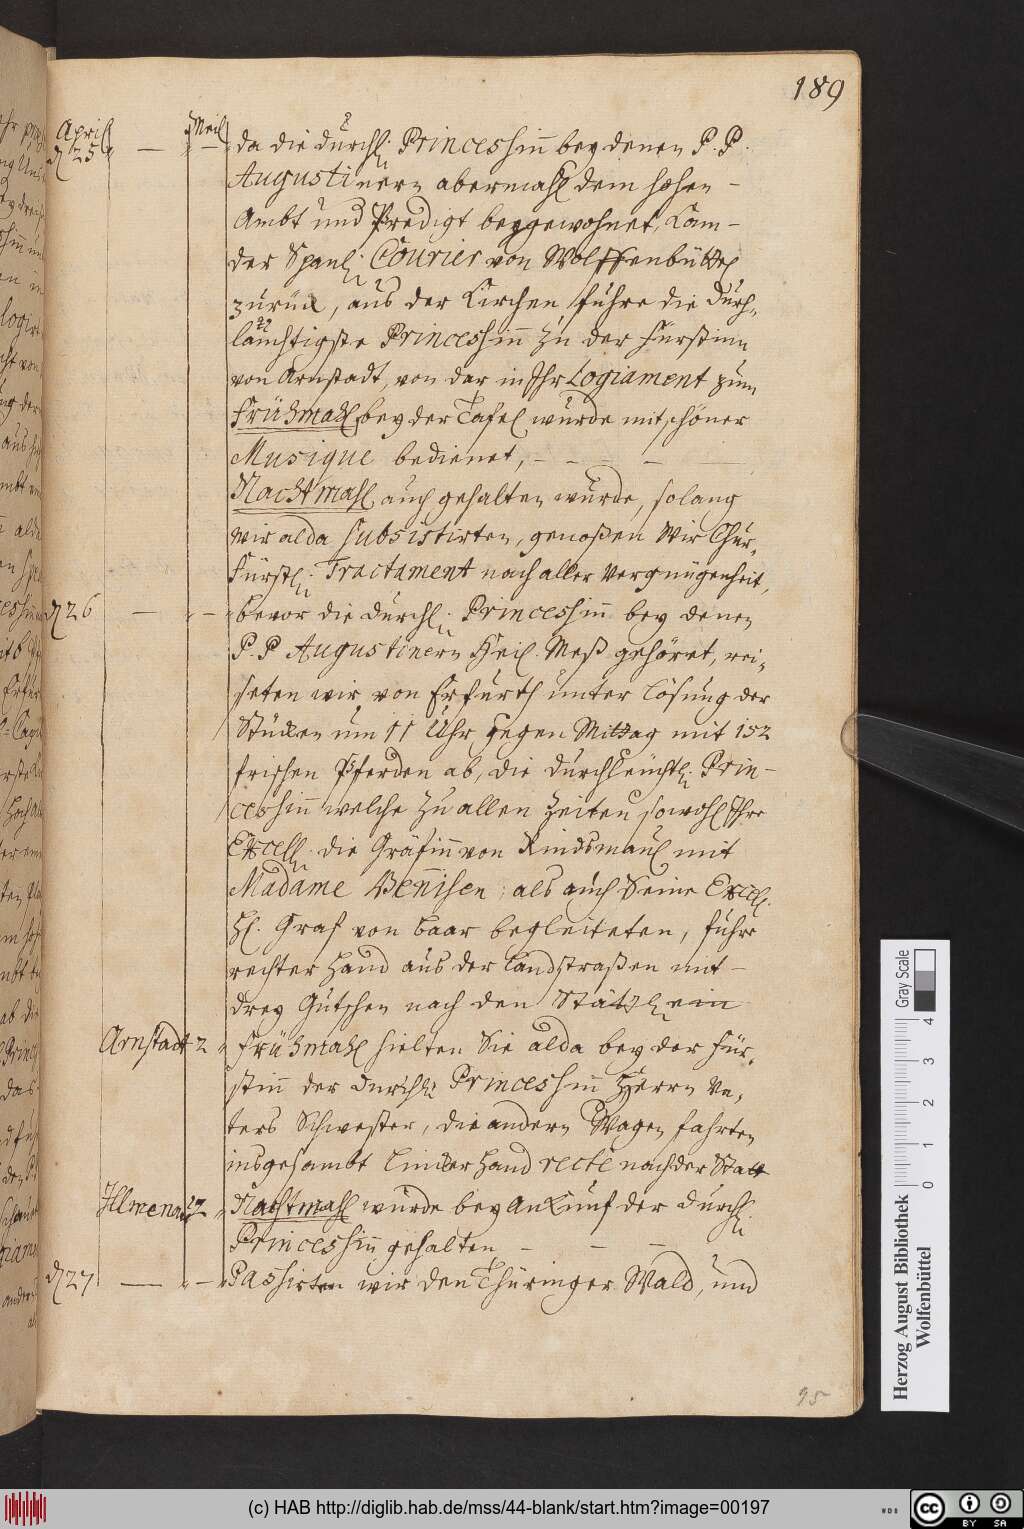 189
April Meil
d. 25 — " — da die durchl: Princessin bey denen P. P.
Augustinern abermahl dem hohen
Ambt und Predigt beygewohnet, kam
der Spanl: Courier von Wolffenbüttel
zurück, aus der Kirchen, führe die Durch-
läuchtigste Princessin zu der Fürstinn
von Arnstadt, von dar in Ihr Logiament zum
Frühmahl, bey der Tafel wurde mit schöner
Musique bedienet, – – – –
Nachtmahl auch gehalten wurde, so lang
wir alda subsistirten, genoßen wir Chur-
fürstl: Tractament nach aller Vergnügenheit,
d. 26 — " — bevor die durchl: Princessin bey denen
P. P. Augustinern Heil. Meß gehöret, rei-
seten wir von Erfurth unter Lösung der
Stücken um 11 Uhr gegen Mittag mit 152
frischen Pferden ab, die durchleüchtl: Prin-
cessin welche zu allen Zeiten sowohl Ihre
Excell: die Gräfin von Rindsmaul mit
Madame Bennisen, als auch Seine Excell.
H. Graf von Baar begleiteten, führe
rechter Hand aus der Landstraßen mit
drey Gutschen nach den Stättlein
Arnstadt 2 " Frühmahl hielten Sie alda bey der Für-
stin der Durchl: Princessin Herrn Va-
ters Schwester, die andern Wagen fahrten
insgesambt lincker Hand recte nach der Statt
Illmenau 2 " Nachtmahl wurde bey Ankunft der Durchl:
Princessin gehalten – – –
d. 27 — " — Passirten wir den Thüringer Wald, und
95
Gray Scale
0 1 2 3 4
Herzog August Bibliothek
Wolfenbüttel
(c) HAB http://diglib.hab.de/mss/44-blank/start.htm?image=00197
WDB
cc BY SA